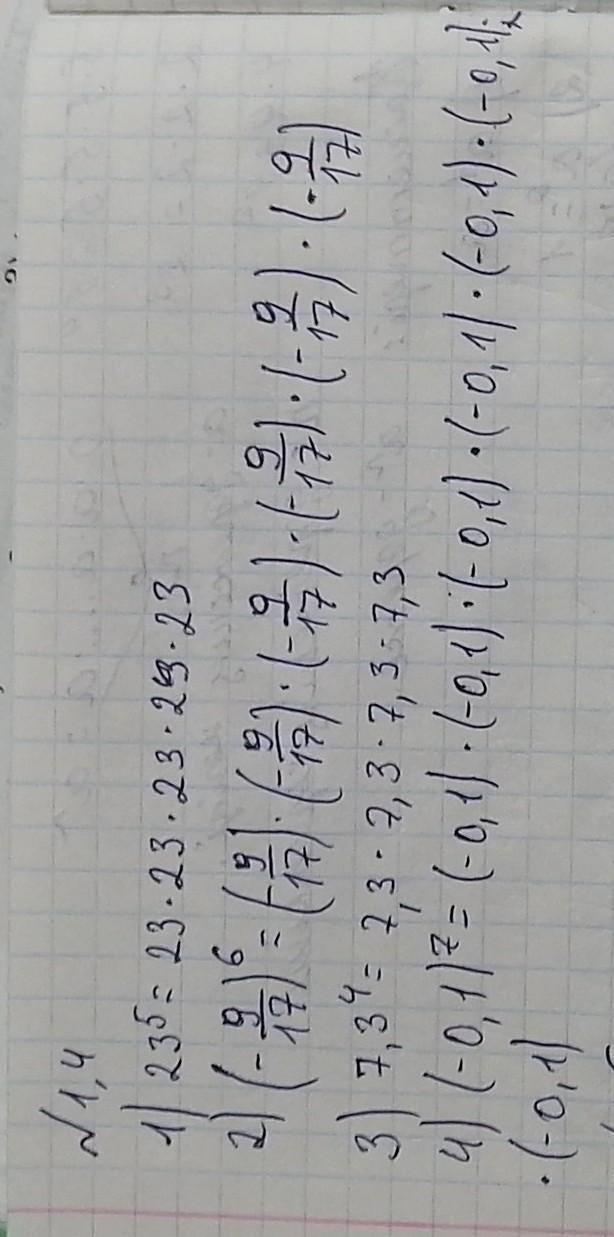 №1,4
1) 23⁵ = 23 · 23 · 23 · 23 · 23
2) (-9/17)⁶ = (-9/17) · (-9/17) · (-9/17) · (-9/17) · (-9/17) · (-9/17)
3) 7,3⁴ = 7,3 · 7,3 · 7,3 · 7,3
4) (-0,1)⁷ = (-0,1) · (-0,1) · (-0,1) · (-0,1) · (-0,1) · (-0,1) ·
· (-0,1)